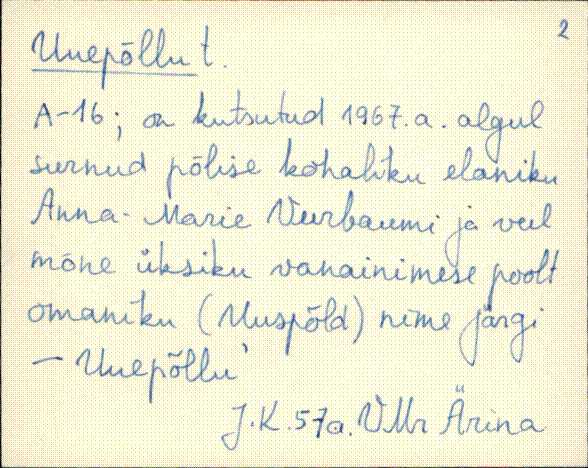 2
Uuepõllu t.
A-16; on kutsutud 1967.a. algul
surnud põlise kohaliku elaniku
Anna-Marie Veerbaumi ja veel
mõne üksiku vanainimese poolt
omaniku (Uuspõld) nime järgi
– Uuepõllu'
J.K. 57a. VMr Ärina